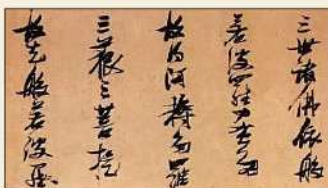 三世諸佛依般
若波羅蜜多
故得阿耨多羅
三藐三菩提
故知般若波羅